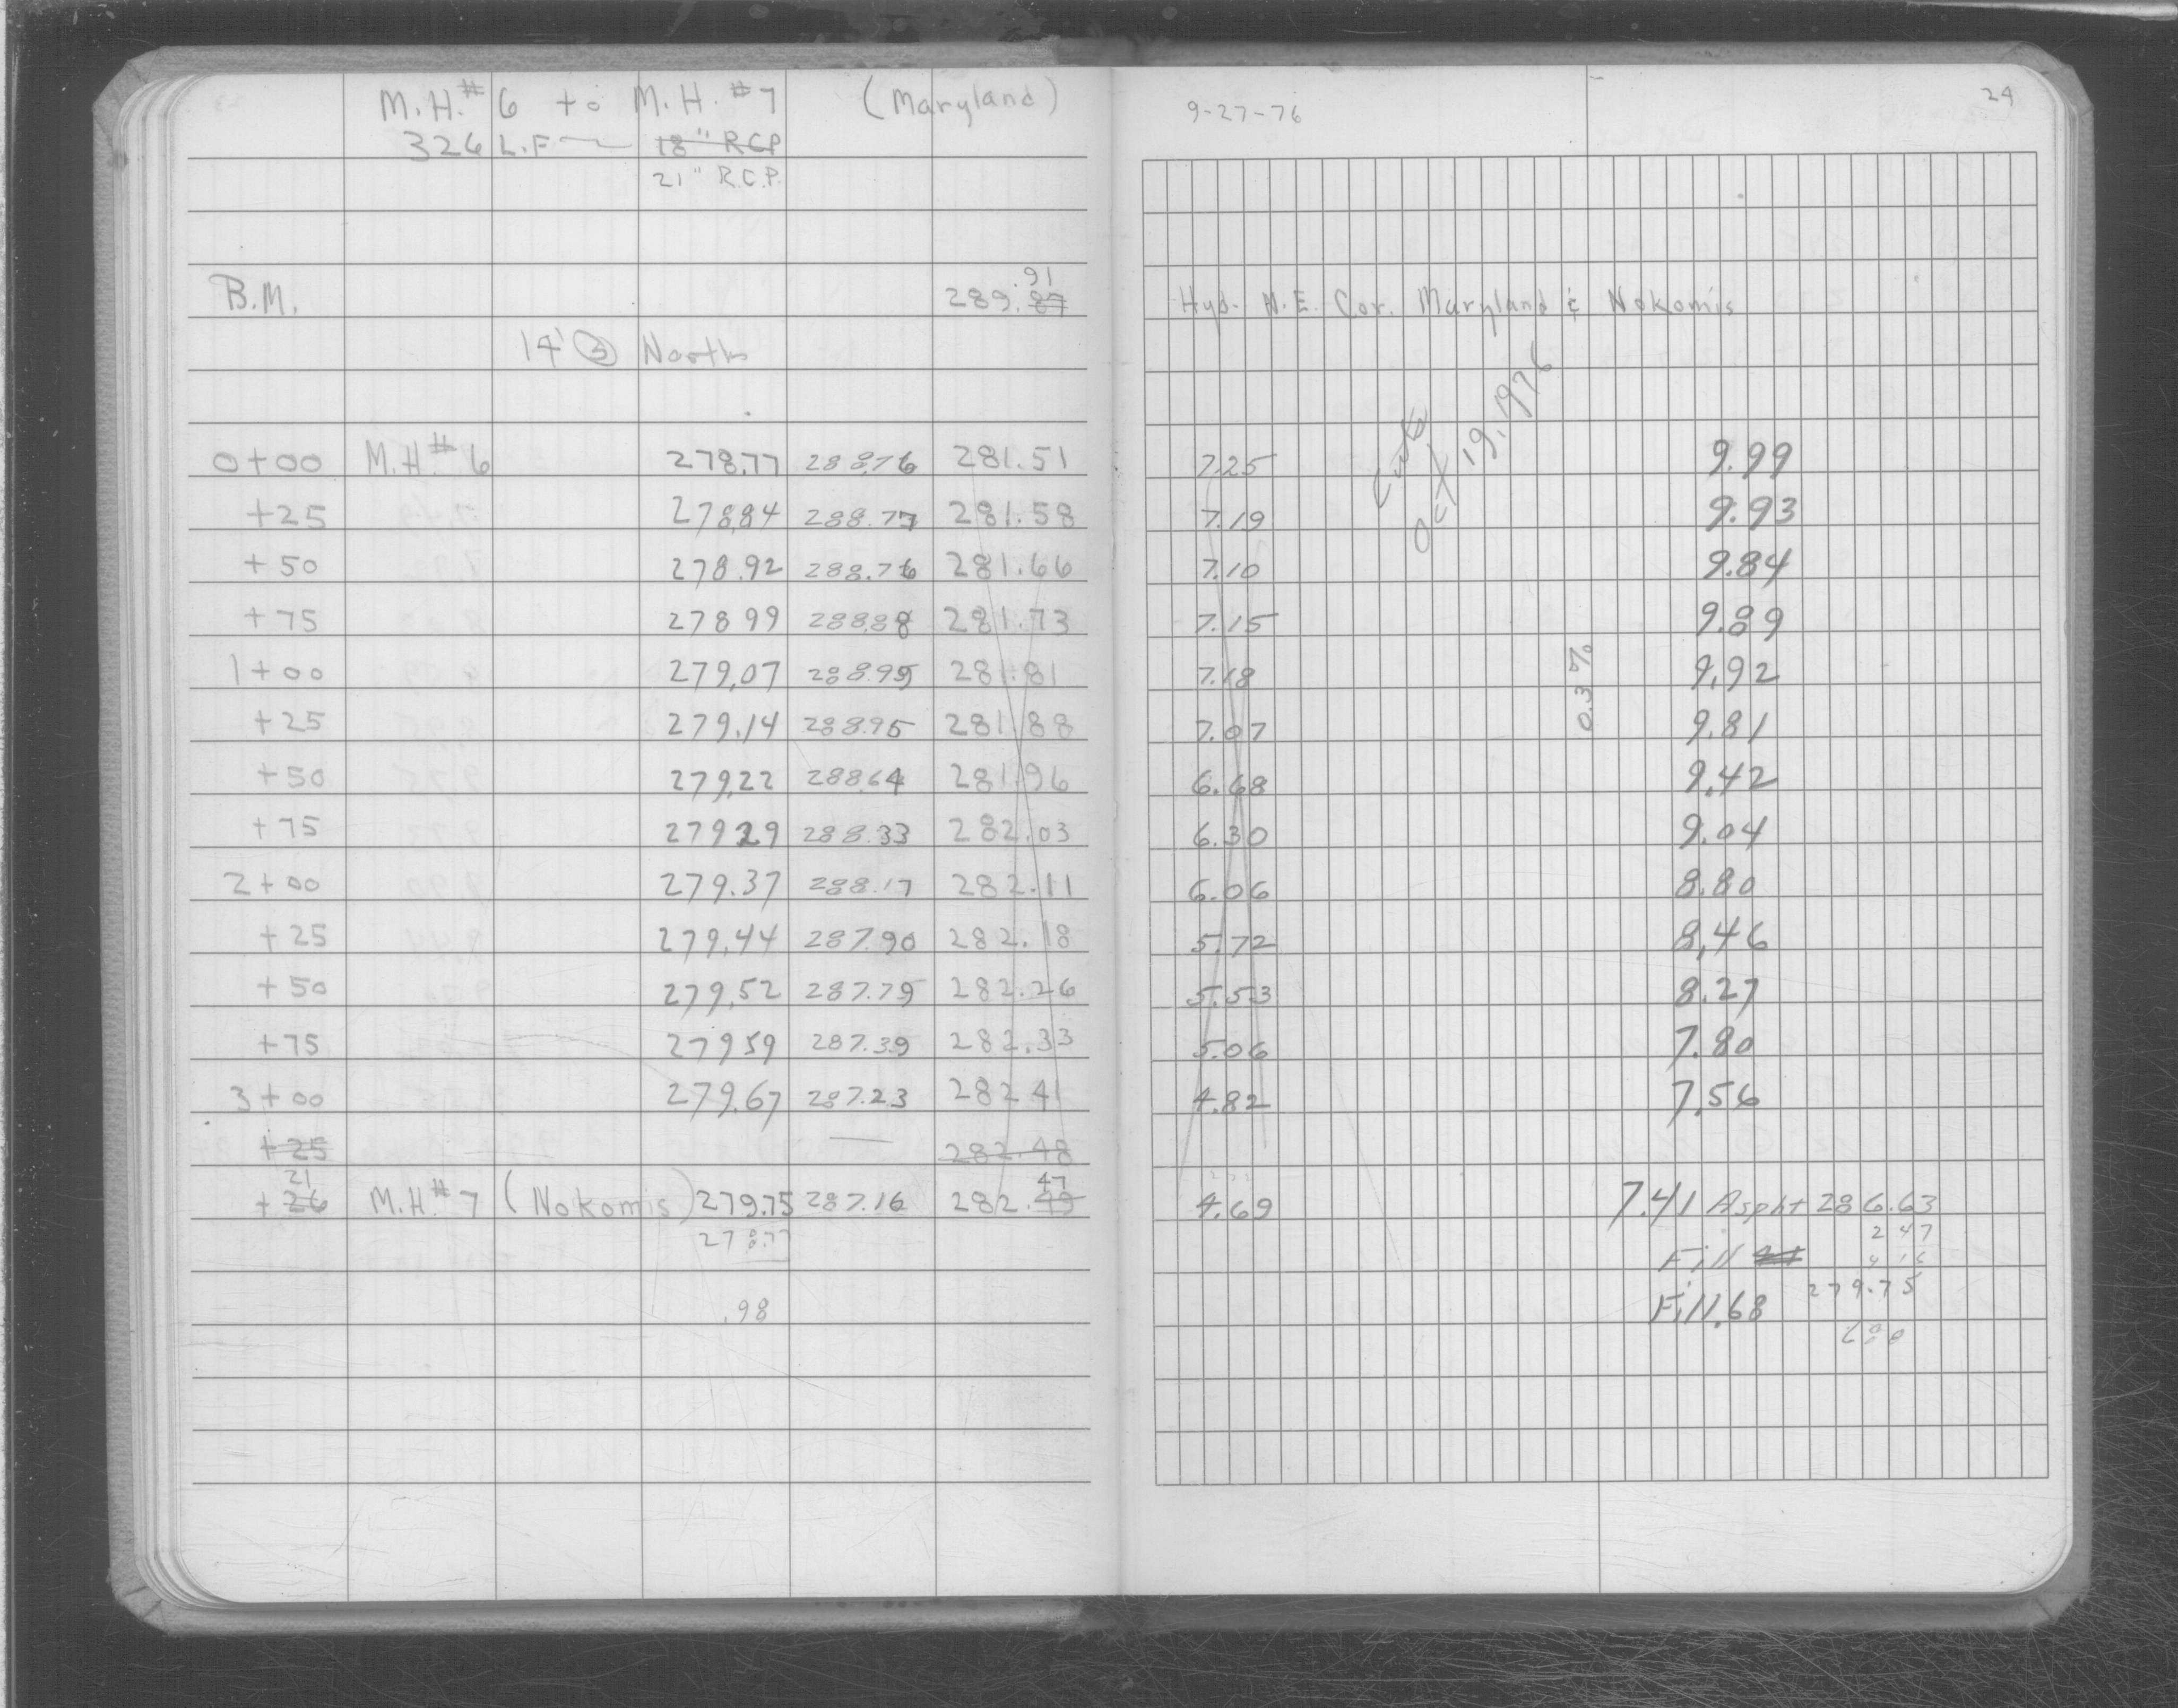 M.H.# 6 to M.H.#7 (Maryland) 9-27-76 24
326 L.F 18" RCP
21" R.C.P.
91
B.M. 289.87 Hyd. N.E. Cor. Maryland & Nokomis
14' North
Cuts
Oct 19, 1976
0+00 M.H.# 6 278.77 288.76 281.51 7.25 9.99
+25 278.84 288.77 281.58 7.19 9.93
+50 278.92 288.76 281.66 7.10 9.84
+75 278 99 288.88 281.73 7.15 9.89
1+00 279.07 288.99 281.81 7.18 9.92
0.3%
+25 279.14 288.95 281.88 7.07 9.81
+50 279.22 288.64 281.96 6.68 9.42
+75 279 29 288.33 282.03 6.30 9.04
2+00 279.37 288.17 282.11 6.06 8.80
+25 279.44 287.90 282.18 5.72 8.46
+50 279.52 287.79 282.26 5.53 8.27
+75 279 59 287.39 282.33 5.06 7.80
3+00 279.67 287.23 282 41 4.82 7.56
+25 — 282.48
21 47
+26 M.H.# 7 (Nokomis) 279.75 287.16 282.49 4.69 7.41 Aspht 286.63
278.77 2 47
Fill 4 16
279.75
.98 Fill .68